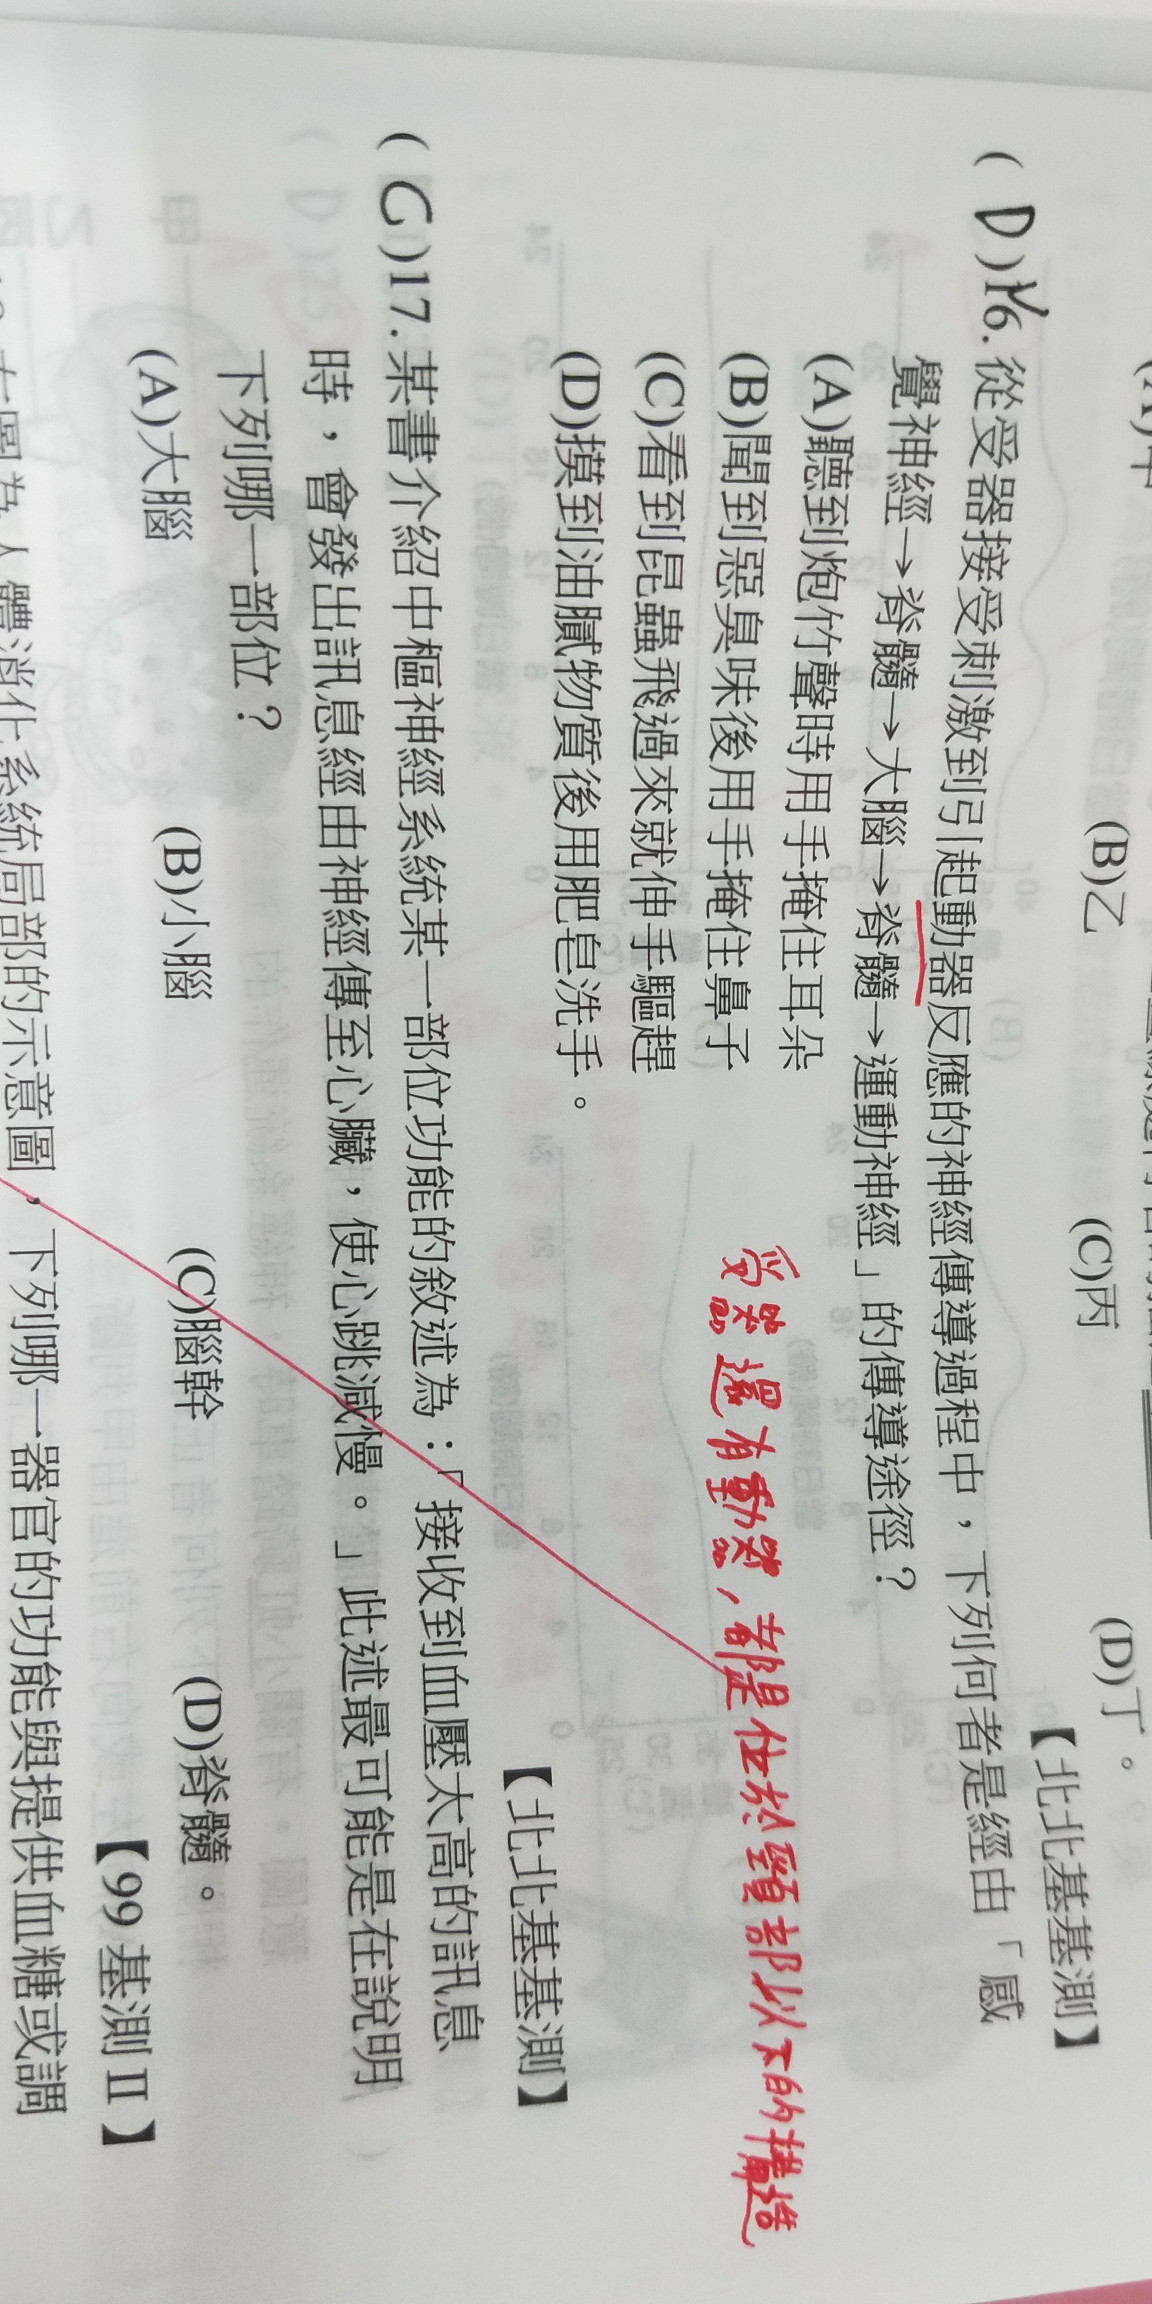 (B)乙
(C)丙
(D)丁。
【北北基基測】
( D )16.從受器接受刺激到引起動器反應的神經傳導過程中，下列何者是經由「感
覺神經→脊髓→大腦→脊髓→運動神經」的傳導途徑？
(A)聽到炮竹聲時用手掩住耳朵
(B)聞到惡臭味後用手掩住鼻子
(C)看到昆蟲飛過來就伸手驅趕
(D)摸到油膩物質後用肥皂洗手。
受器還有動器，都是位於頸部以下的構造
【北北基基測】
( C )17.某書介紹中樞神經系統某一部位功能的敘述為：「接收到血壓太高的訊息
時，會發出訊息經由神經傳至心臟，使心跳減慢。」此述最可能是在說明
下列哪一部位？
(A)大腦 (B)小腦 (C)腦幹 (D)脊髓。
【99 基測 II】
右圖為人體消化系統局部的示意圖，下列哪一器官的功能與提供血糖或調